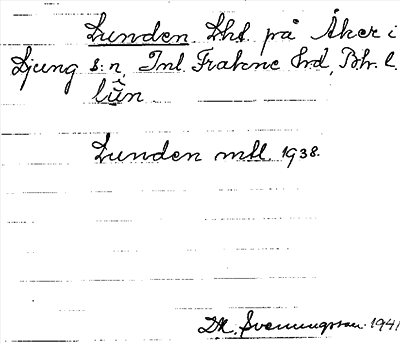 Lunden Lht på Åker i
Ljung s:n, Inl. Frakne hrd, Bh. l.
lũ̀n
Lunden mtl. 1938.
D.A. Svenungsson 1941